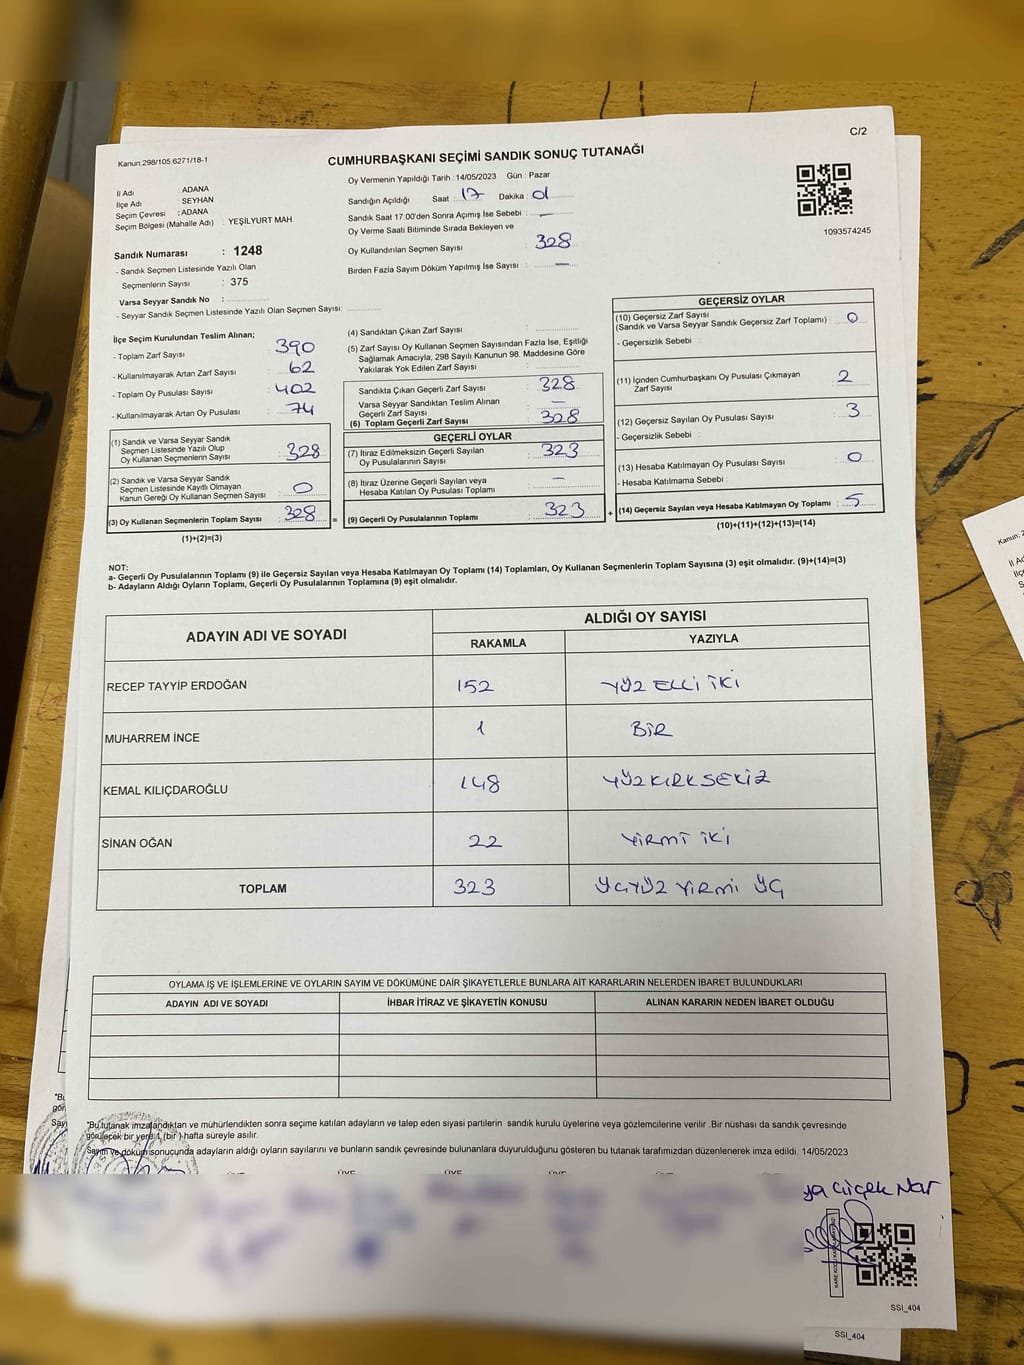 C/2
Kanun:298/105,6271/18-1
CUMHURBAŞKANI SEÇİMİ SANDIK SONUÇ TUTANAĞI
İl Adı : ADANA
İlçe Adı : SEYHAN
Seçim Çevresi : ADANA
Seçim Bölgesi (Mahalle Adı) : YEŞİLYURT MAH
Sandık Numarası : 1248
- Sandık Seçmen Listesinde Yazılı Olan
Seçmenlerin Sayısı : 375
Varsa Seyyar Sandık No :
- Seyyar Sandık Seçmen Listesinde Yazılı Olan Seçmen Sayısı:
Oy Vermenin Yapıldığı Tarih : 14/05/2023 Gün : Pazar
Sandığın Açıldığı Saat : 17 Dakika : 01
Sandık Saat 17:00'den Sonra Açımış İse Sebebi : —
Oy Verme Saati Bitiminde Sırada Bekleyen ve
Oy Kullandırılan Seçmen Sayısı : 328
Birden Fazla Sayım Döküm Yapılmış İse Sayısı : —
1093574245
İlçe Seçim Kurulundan Teslim Alınan;
- Toplam Zarf Sayısı : 390
- Kullanılmayarak Artan Zarf Sayısı : 62
- Toplam Oy Pusulası Sayısı : 402
- Kullanılmayarak Artan Oy Pusulası : 74
(1) Sandık ve Varsa Seyyar Sandık
Seçmen Listesinde Yazılı Olup
Oy Kullanan Seçmenlerin Sayısı : 328
(2) Sandık ve Varsa Seyyar Sandık
Seçmen Listesinde Kayıtlı Olmayan
Kanun Gereği Oy Kullanan Seçmen Sayısı : 0
(3) Oy Kullanan Seçmenlerin Toplam Sayısı : 328
(1)+(2)=(3)
(4) Sandıktan Çıkan Zarf Sayısı :
(5) Zarf Sayısı Oy Kullanan Seçmen Sayısından Fazla İse, Eşitliği
Sağlamak Amacıyla; 298 Sayılı Kanunun 98. Maddesine Göre
Yakılarak Yok Edilen Zarf Sayısı :
Sandıkta Çıkan Geçerli Zarf Sayısı : 328
Varsa Seyyar Sandıktan Teslim Alınan
Geçerli Zarf Sayısı : —
(6) Toplam Geçerli Zarf Sayısı : 328
GEÇERLİ OYLAR
(7) İtiraz Edilmeksizin Geçerli Sayılan
Oy Pusulalarının Sayısı : 323
(8) İtiraz Üzerine Geçerli Sayılan veya
Hesaba Katılan Oy Pusulası Toplamı : —
= (9) Geçerli Oy Pusulalarının Toplamı : 323
GEÇERSİZ OYLAR
(10) Geçersiz Zarf Sayısı
(Sandık ve Varsa Seyyar Sandık Geçersiz Zarf Toplamı) : 0
- Geçersizlik Sebebi :
(11) İçinden Cumhurbaşkanı Oy Pusulası Çıkmayan
Zarf Sayısı : 2
(12) Geçersiz Sayılan Oy Pusulası Sayısı : 3
- Geçersizlik Sebebi :
(13) Hesaba Katılmayan Oy Pusulası Sayısı : 0
- Hesaba Katılmama Sebebi :
+ (14) Geçersiz Sayılan veya Hesaba Katılmayan Oy Toplamı : 5
(10)+(11)+(12)+(13)=(14)
NOT:
a- Geçerli Oy Pusulalarının Toplamı (9) ile Geçersiz Sayılan veya Hesaba Katılmayan Oy Toplamı (14) Toplamları, Oy Kullanan Seçmenlerin Toplam Sayısına (3) eşit olmalıdır. (9)+(14)=(3)
b- Adayların Aldığı Oyların Toplamı, Geçerli Oy Pusulalarının Toplamına (9) eşit olmalıdır.
ADAYIN ADI VE SOYADI
ALDIĞI OY SAYISI
RAKAMLA YAZIYLA
RECEP TAYYİP ERDOĞAN 152 YÜZ ELLİ İKİ
MUHARREM İNCE 1 BİR
KEMAL KILIÇDAROĞLU 148 YÜZ KIRK SEKİZ
SİNAN OĞAN 22 YİRMİ İKİ
TOPLAM 323 ÜÇYÜZ YİRMİ ÜÇ
OYLAMA İŞ VE İŞLEMLERİNE VE OYLARIN SAYIM VE DÖKÜMÜNE DAİR ŞİKAYETLERLE BUNLARA AİT KARARLARIN NELERDEN İBARET BULUNDUKLARI
ADAYIN ADI VE SOYADI İHBAR İTİRAZ VE ŞİKAYETİN KONUSU ALINAN KARARIN NEDEN İBARET OLDUĞU
*Bu tutanak imzalandıktan ve mühürlendikten sonra seçime katılan adayların ve talep eden siyasi partilerin sandık kurulu üyelerine veya gözlemcilerine verilir .Bir nüshası da sandık çevresinde
görülecek bir yere 1 (bir ) hafta süreyle asılır.
Sayım ve döküm sonucunda adayların aldığı oyların sayılarını ve bunların sandık çevresinde bulunanlara duyurulduğunu gösteren bu tutanak tarafımızdan düzenlenerek imza edildi. 14/05/2023
ya Çiçek Nar
SSI_404
SSI_404